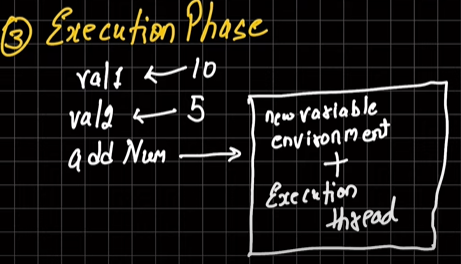 ③ Execution Phase
val1 ← 10
val2 ← 5
add Num →
new variable
environment
+
Execution
thread